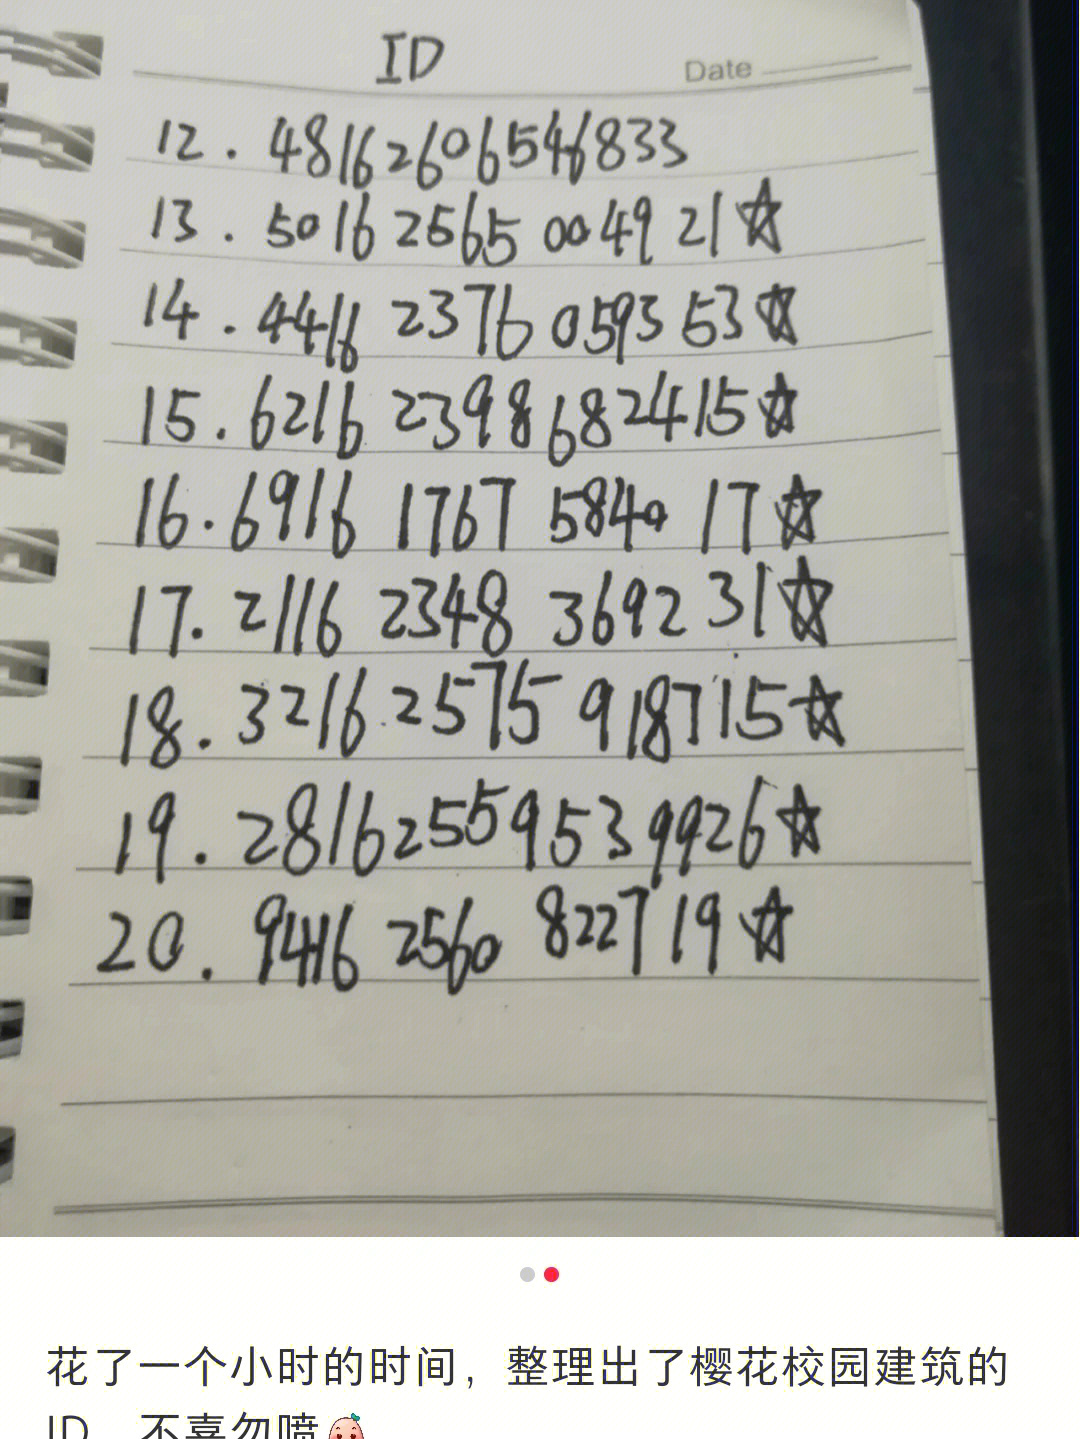 ID
Date
12. 4816 2606546833
13. 5016 2565 0049 21☆
14. 4416 2376 0593 53☆
15. 6216 2398 682415☆
16. 6916 1767 5840 17☆
17. 2116 2348 3692 31☆
18. 3216 2575 918715☆
19. 2816 2559539926☆
20. 9416 2560 822719☆
花了一个小时的时间，整理出了樱花校园建筑的
ID，不喜勿喷